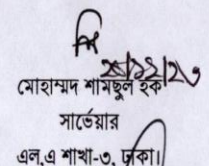 ২৪/১২/২৩
মোহাম্মদ শামছুল হক
সার্ভেয়ার
এল,এ শাখা-৩, ঢাকা।